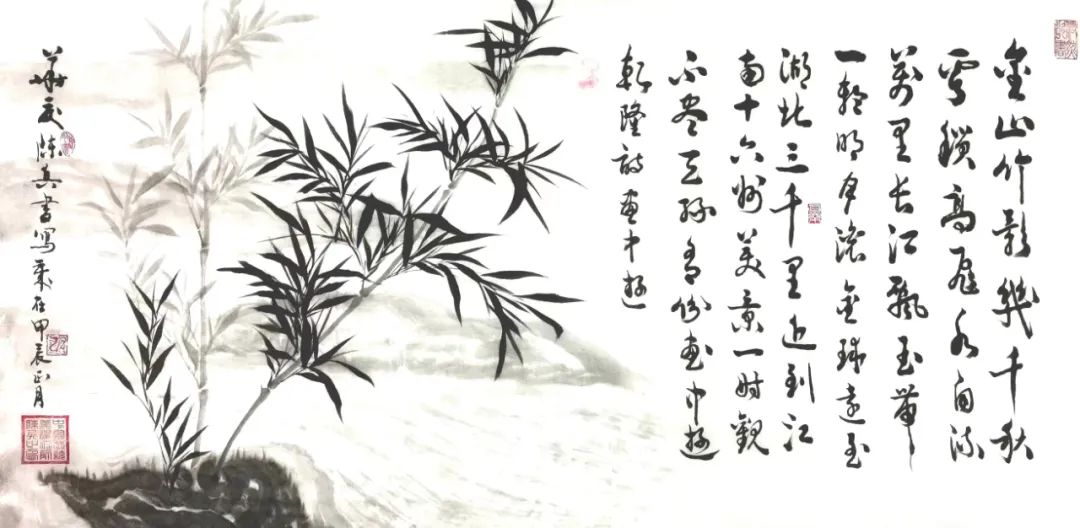 金山竹影幾千秋
雲鎖高崖水自流
萬里長江飄玉帶
一輪明月滾金球遠至
湖北三千里近到江
南十六州美景一時觀
不盡天緣有份畫中遊
乾隆詩畫中遊
華夏陳真書寫歲在甲辰正月